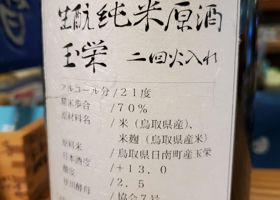 生酛純米原酒
玉栄 二回火入れ
アルコール分/21度
精米歩合/70%
原材料名/米(鳥取県産)、
米麹(鳥取県産米)
原料米/鳥取県日南町産玉栄
日本酒度/+13.0
酸度/2.5
使用酵母/協会7号